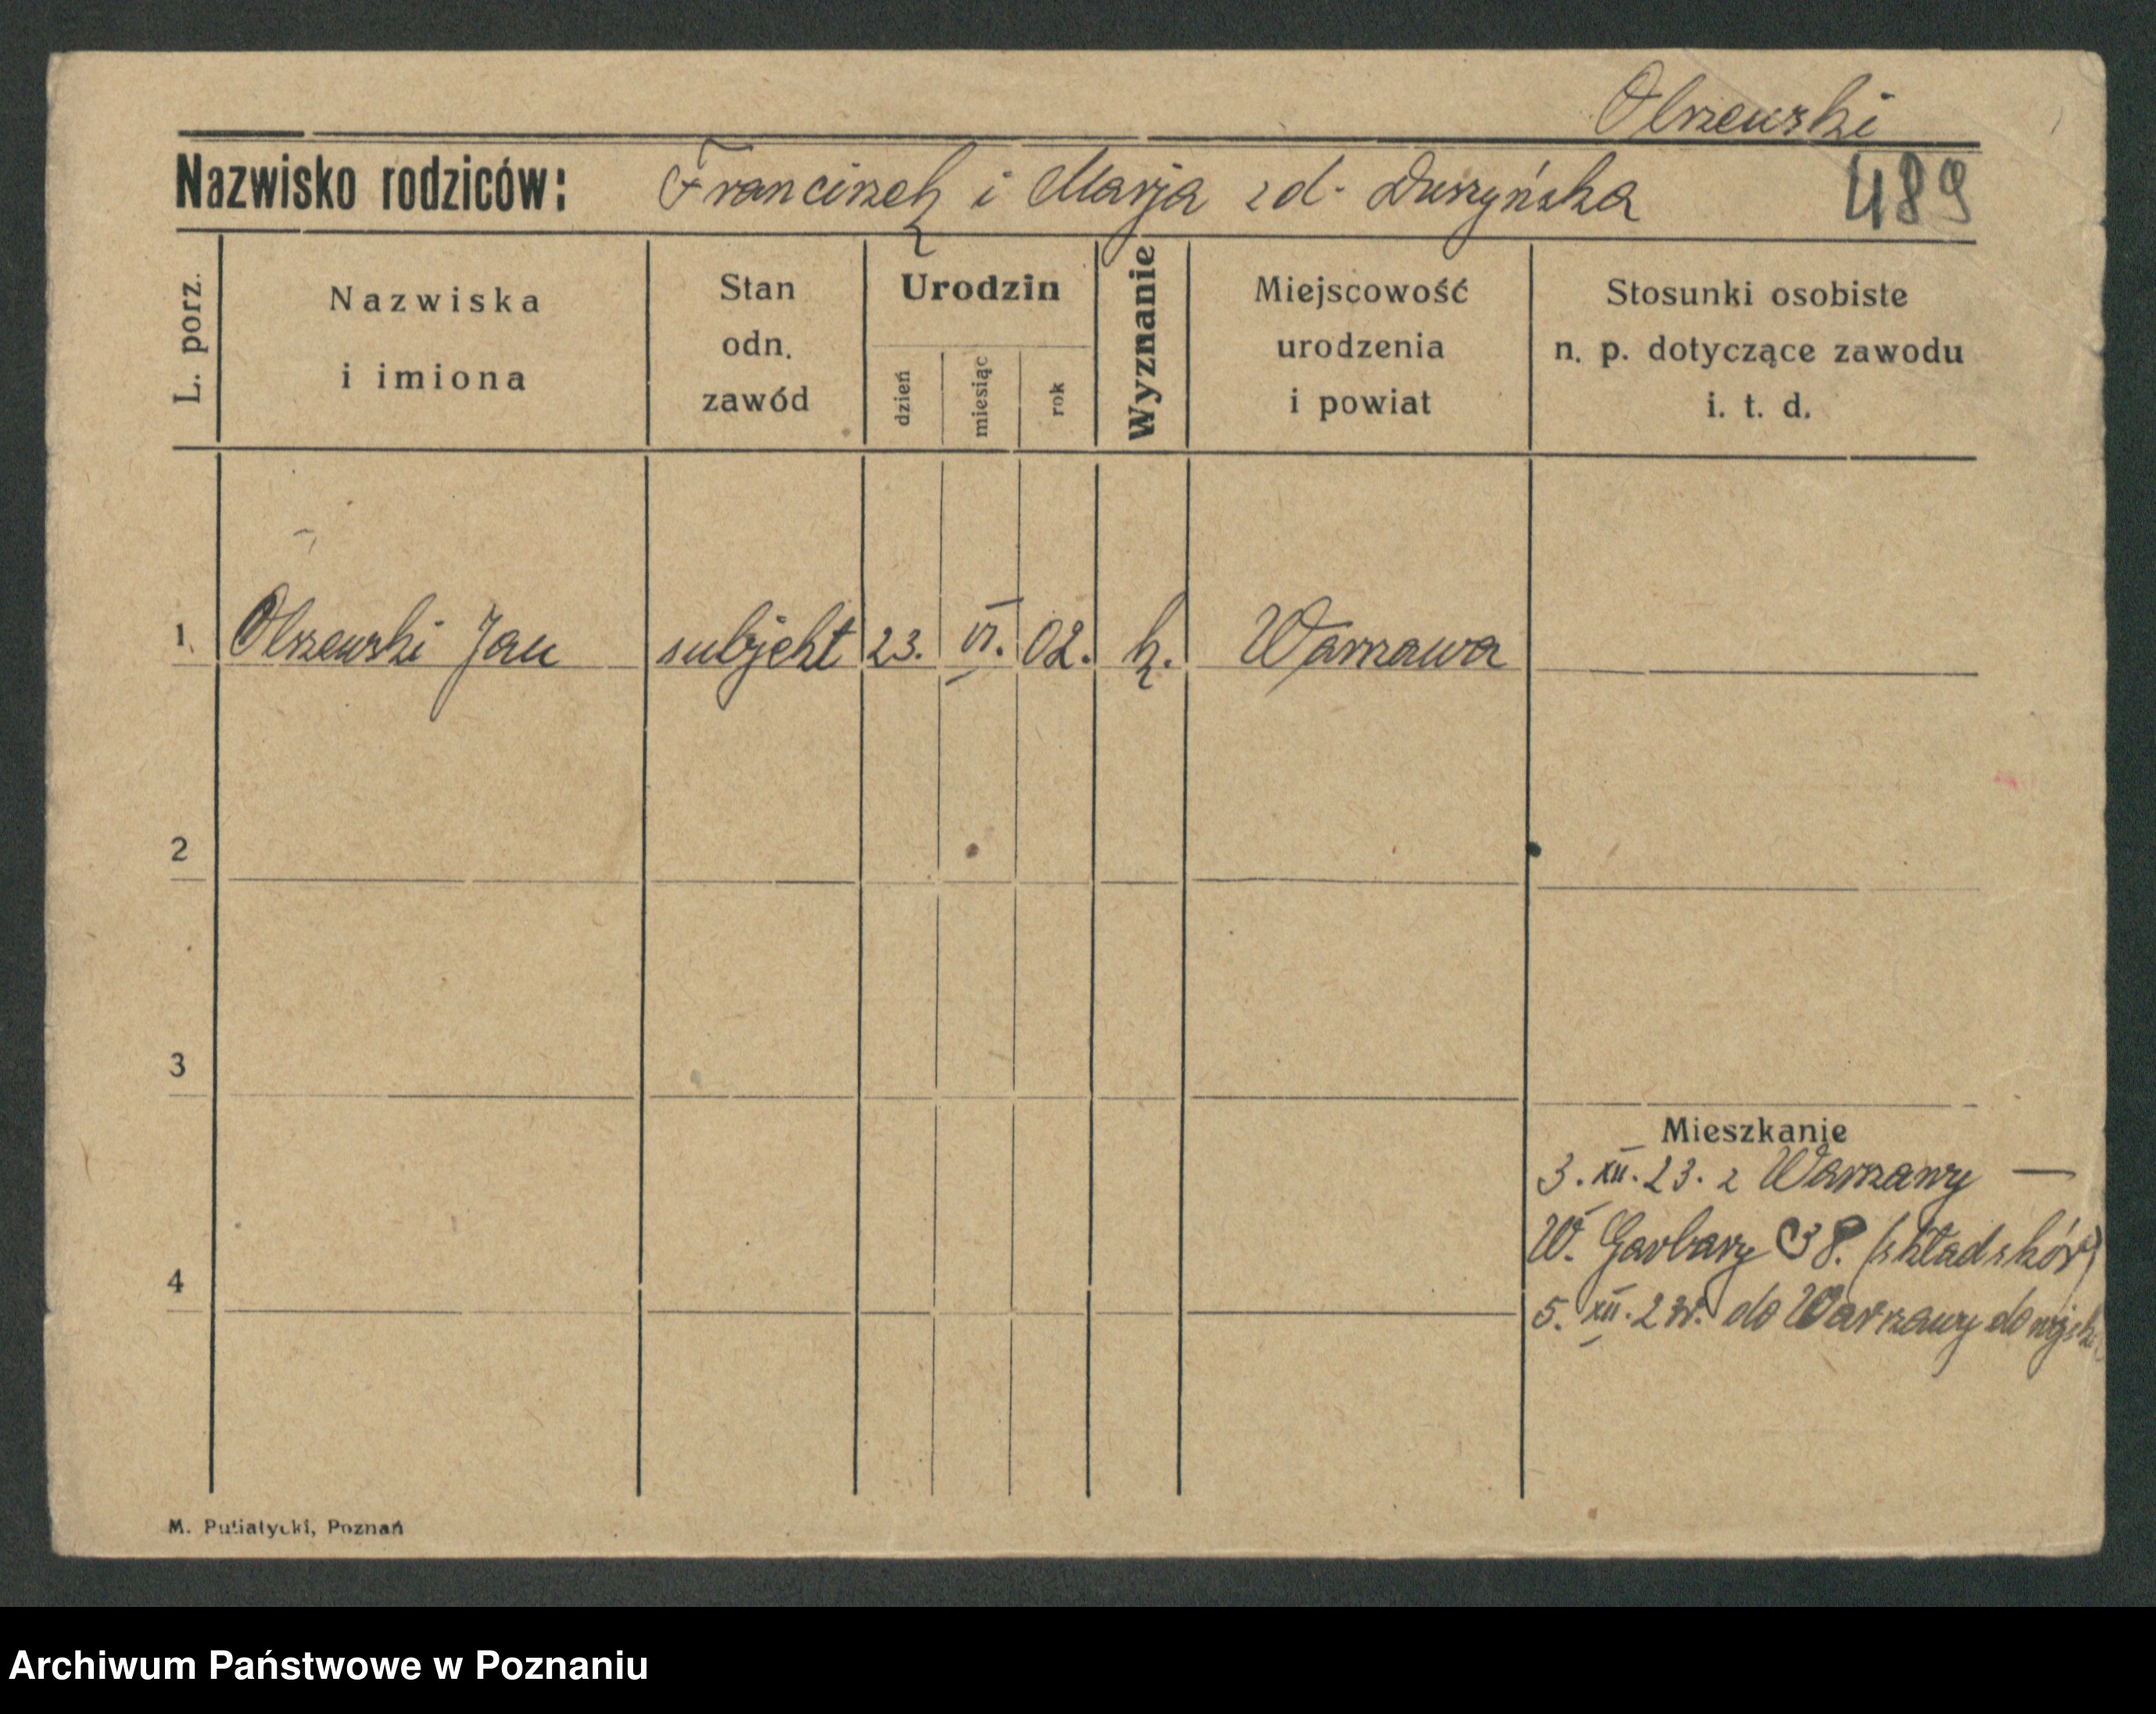 Olszewski
Nazwisko rodziców: Franciszek i Marja zd. Duszyńska 489
L. porz.
Nazwiska i imiona
Stan odn. zawód
Urodzin
dzień
miesiąc
rok
Wyznanie
Miejscowość urodzenia i powiat
Stosunki osobiste n. p. dotyczące zawodu i. t. d.
1. Olszewski Jan subjekt 23. VI. 02. k. Warszawa
2
3
Mieszkanie
3. XII. 23. z Warszawy —
W. Garbary 38. (skład skór)
4
5. XII. do Warszawy do
M. Putiatycki, Poznań
Archiwum Państwowe w Poznaniu